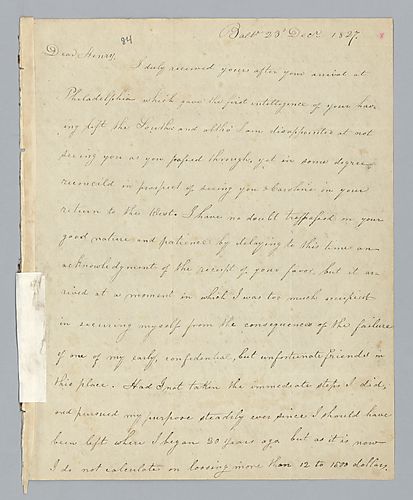 Balto 23d Decr 1827.
84
Dear Henry,
I duly received yours after your arrival at
Philadelphia which gave the first intelligence of your hav
ing left the South and altho' I am disappointed at not
seeing you as you passed through, yet in some degree
reconcild in prospect of seeing you & Caroline in your
return to the West. I have no doubt trespassed on your
good nature and patience by delaying to this time an
acknowledgment of the receipt of your favor, but it ar
rived at a moment in which I was too much occupied
in securing myself from the consequences of the failure
of one of my early, confidential, but unfortunate friends in
this place. Had I not taken the immediate steps I did,
and pursued my purpose steadily ever since I should have
been left where I began 30 years ago but as it is now
I do not calculate on loosing more than 12 to 1500 dollars,